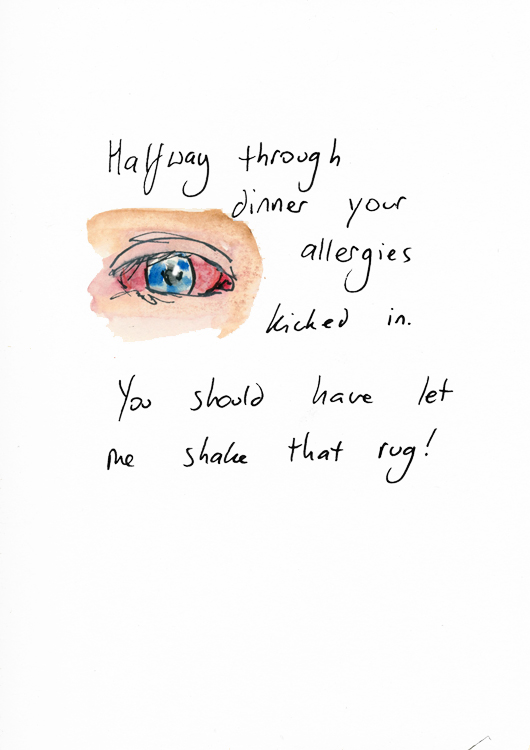 Halfway through
dinner your
allergies
kicked in.
You should have let
me shake that rug!